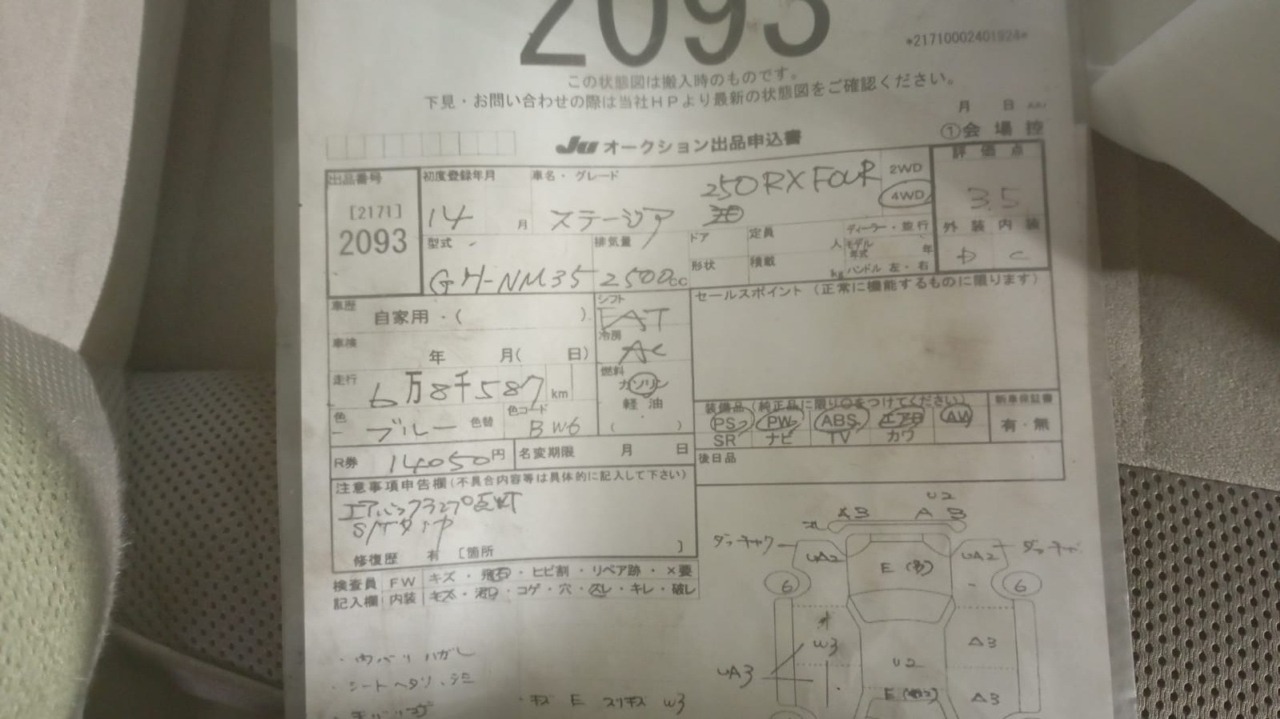 2093
*21710002401924*
この状態図は搬入時のものです。
下見・お問い合わせの際は当社HPより最新の状態図をご確認ください。
月 日
①会場控
JU オークション出品申込書
出品番号 初度登録年月 車名・グレード 2WD 評価点
[2171] 14 月 ステージア 250RX FOUR 4WD 3.5
2093
型式 排気量 ドア 定員 人 ディーラー・並行 外装 内装
形状 積載 kg モデル年式 年 D C
GH-NM35 2500cc ハンドル 左・右
車歴 自家用・( ) シフト FAT セールスポイント (正常に機能するものに限ります)
車検 年 月( 日) 冷房 AC
走行 6万8千587 km 燃料 ガソリン
軽油
( )
色 ブルー 色替 色コード BW6
装備品 (純正品に限り○をつけてください) 新車保証書
PS PW ABS エアB AW 有・無
SR ナビ TV カワ
R券 14050円 名変期限 月 日 後日品
注意事項申告欄(不具合内容等は具体的に記入して下さい)
修復歴 有 [箇所 ]
検査員 FW キズ・飛石・ヒビ割・リペア跡・×要
記入欄 内装 キズ・コゲ・穴・スレ・キレ・破レ
・内バリハガレ
・シートヘタリ、シミ
・キズ E スリキズ W3
U2
A3 A 3
UA2 UA2
E
6 6
W3 A3
UA3 U2
E A3